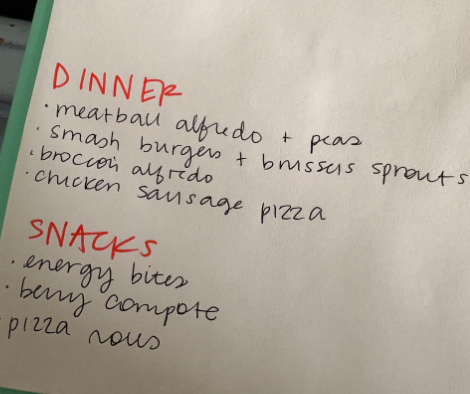 DINNER
· meatball alfredo + peas
· smash burgers + brussels sprouts
· broccoli alfredo
· chicken sausage pizza
SNACKS
· energy bites
· berry compote
· pizza rolls